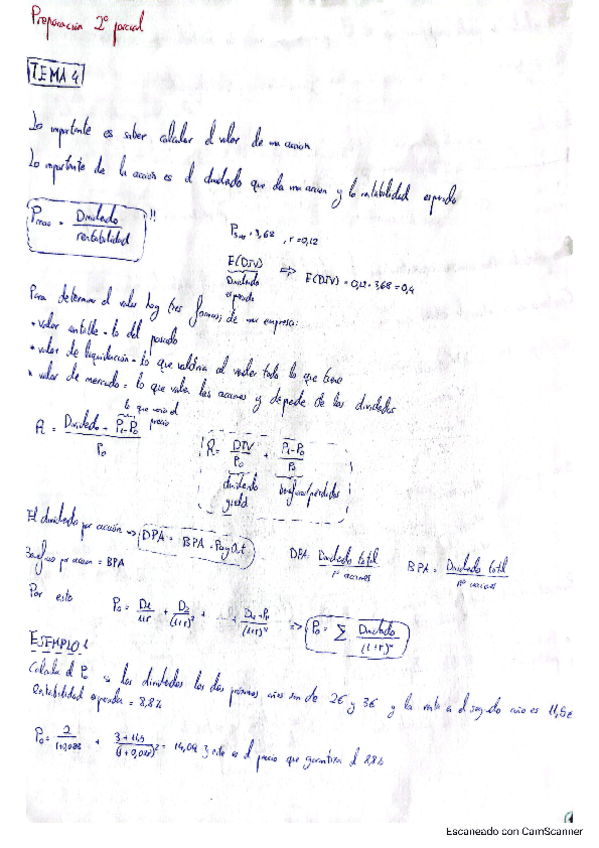 Preparación 2º parcial
TEMA 4
Lo importante es saber calcular el valor de una acción
Lo importante de la acción es el dividendo que da una accion y la rentabilidad esperada
P = Dividendo / rentabilidad !!
= 3,68 , r = 0,12
E(DIV) => E(DIV) = 0,12 · 3,68 = 0,4
Dividendo
esperado
Para determinar el valor hay tres formas, de una empresa:
· valor contable = lo del pasado
· valor de liquidación = lo que valdria al vender todo lo que tiene
· valor de mercado = lo que valen las acciones y depende de los dividendos
lo que varia el
precio
R = Dividendo - P1-P0 / P0
R = DIV / P0 + P1-P0 / P0
dividend yield
beneficio/perdidas
El dividendo por acción => DPA = BPA · PayOut
DPA = Dividendo total / nº acciones
BPA = Dividendo total / nº acciones
Beneficio por accion = BPA
Por esto P0 = D1 / 1+r + D2 / (1+r)² + ... + / (1+r)ⁿ => P0 = Σ Dividendo / (1+r)ⁿ
EJEMPLO 1
Calcula el P0 si los dividendos los dos próximos años son de 2€ y 3€ y la venta al segundo año es 11,5€
Rentabilidad esperada = 8,8%
P0 = 2 / 1+0,088 + 3+11,5 / (1+0,088)² = 14,09 este es el precio que garantiza el 8,8%
Escaneado con CamScanner